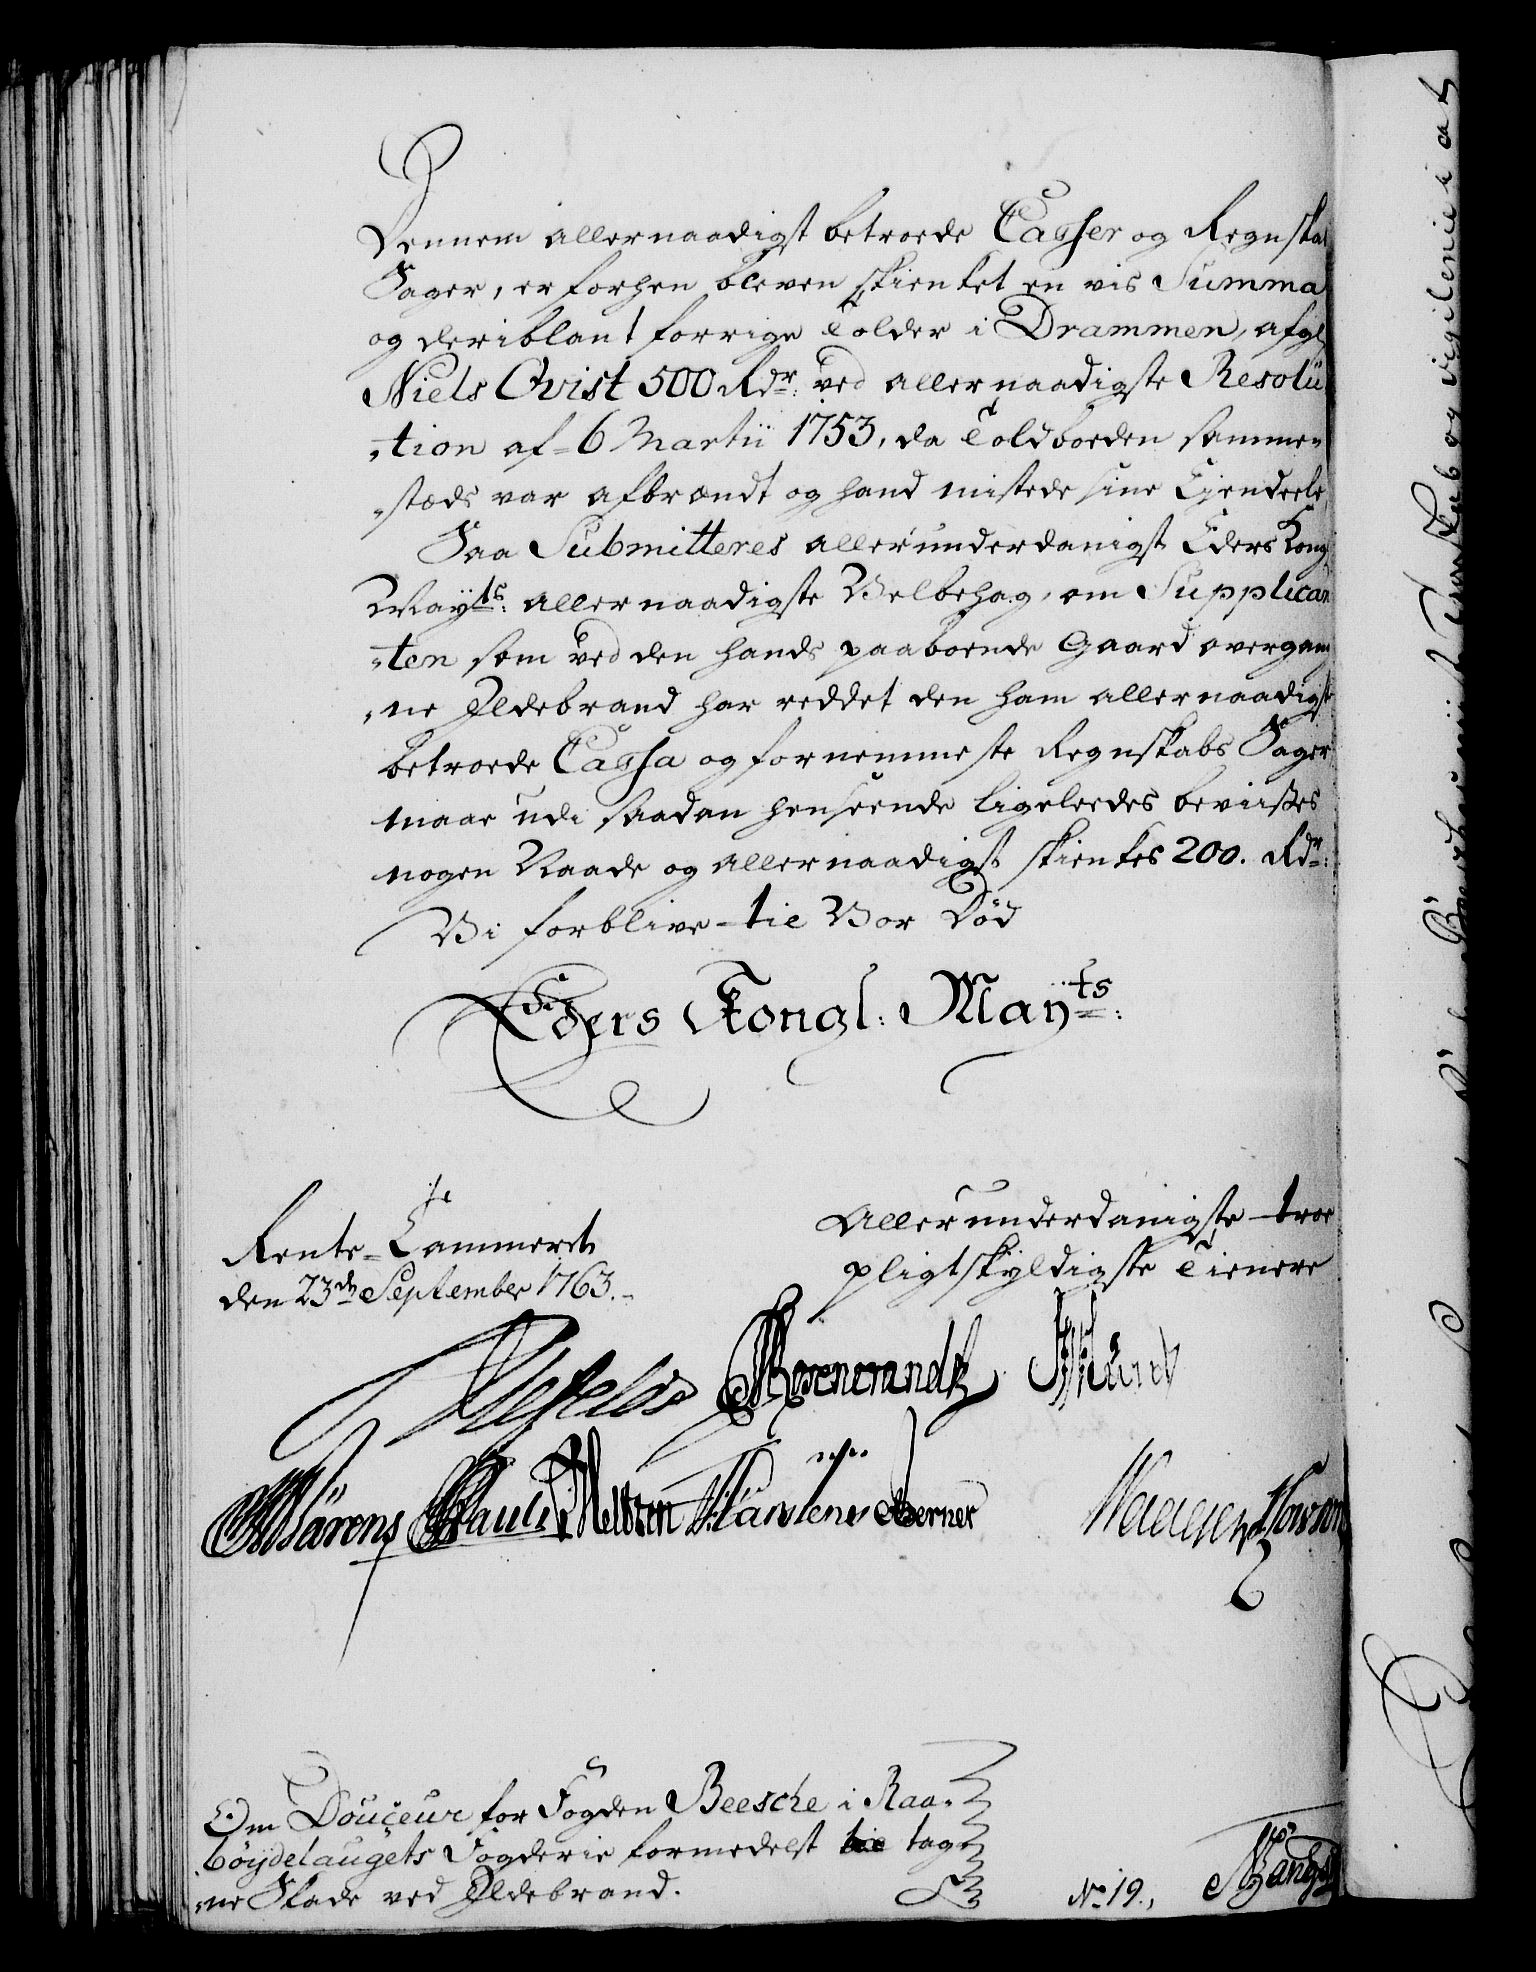 Dennem allernaadigst betroede Casser og Regnskabs
Sager, er forhen bleven skienket en vis Summa
og deriblant forrige Tolder i Drammen, afgl
Niels Qvist 500 Rdr: ved allernaadigste Resolu
-tion af 6 Martii 1753, da Toldboeden samme-
-stæds var afbrændt og hand mistede sine Ejendeele,
Saa Submitteres allerunderdanigst Eders Kongl
Mayts: allernaadigste Velbehag, om Supplican
-ten som ved den hands paaboende Gaard overgan
-ne Ildebrand har reddet den ham allernaadigst
betroede Cassa og fornemmeste Regnskabs Sager
maae udi saadan henseende ligeleedes beviises
nogen Naade og allernaadigst skienkes 200. Rdr:
Vi forblive tie Vor Død
Eders Kongl: Mayts:
Rente-Cammeret
den 23de September 1763.
Allerunderdanigste troe
pligtskyldigste Tienere
Pauli Berner
Om Douceur for Fogden Beesche i Raa-
böydelaugets Fogderie formedelst tagen
-ne Skade ved Ildebrand.
No. 19.,